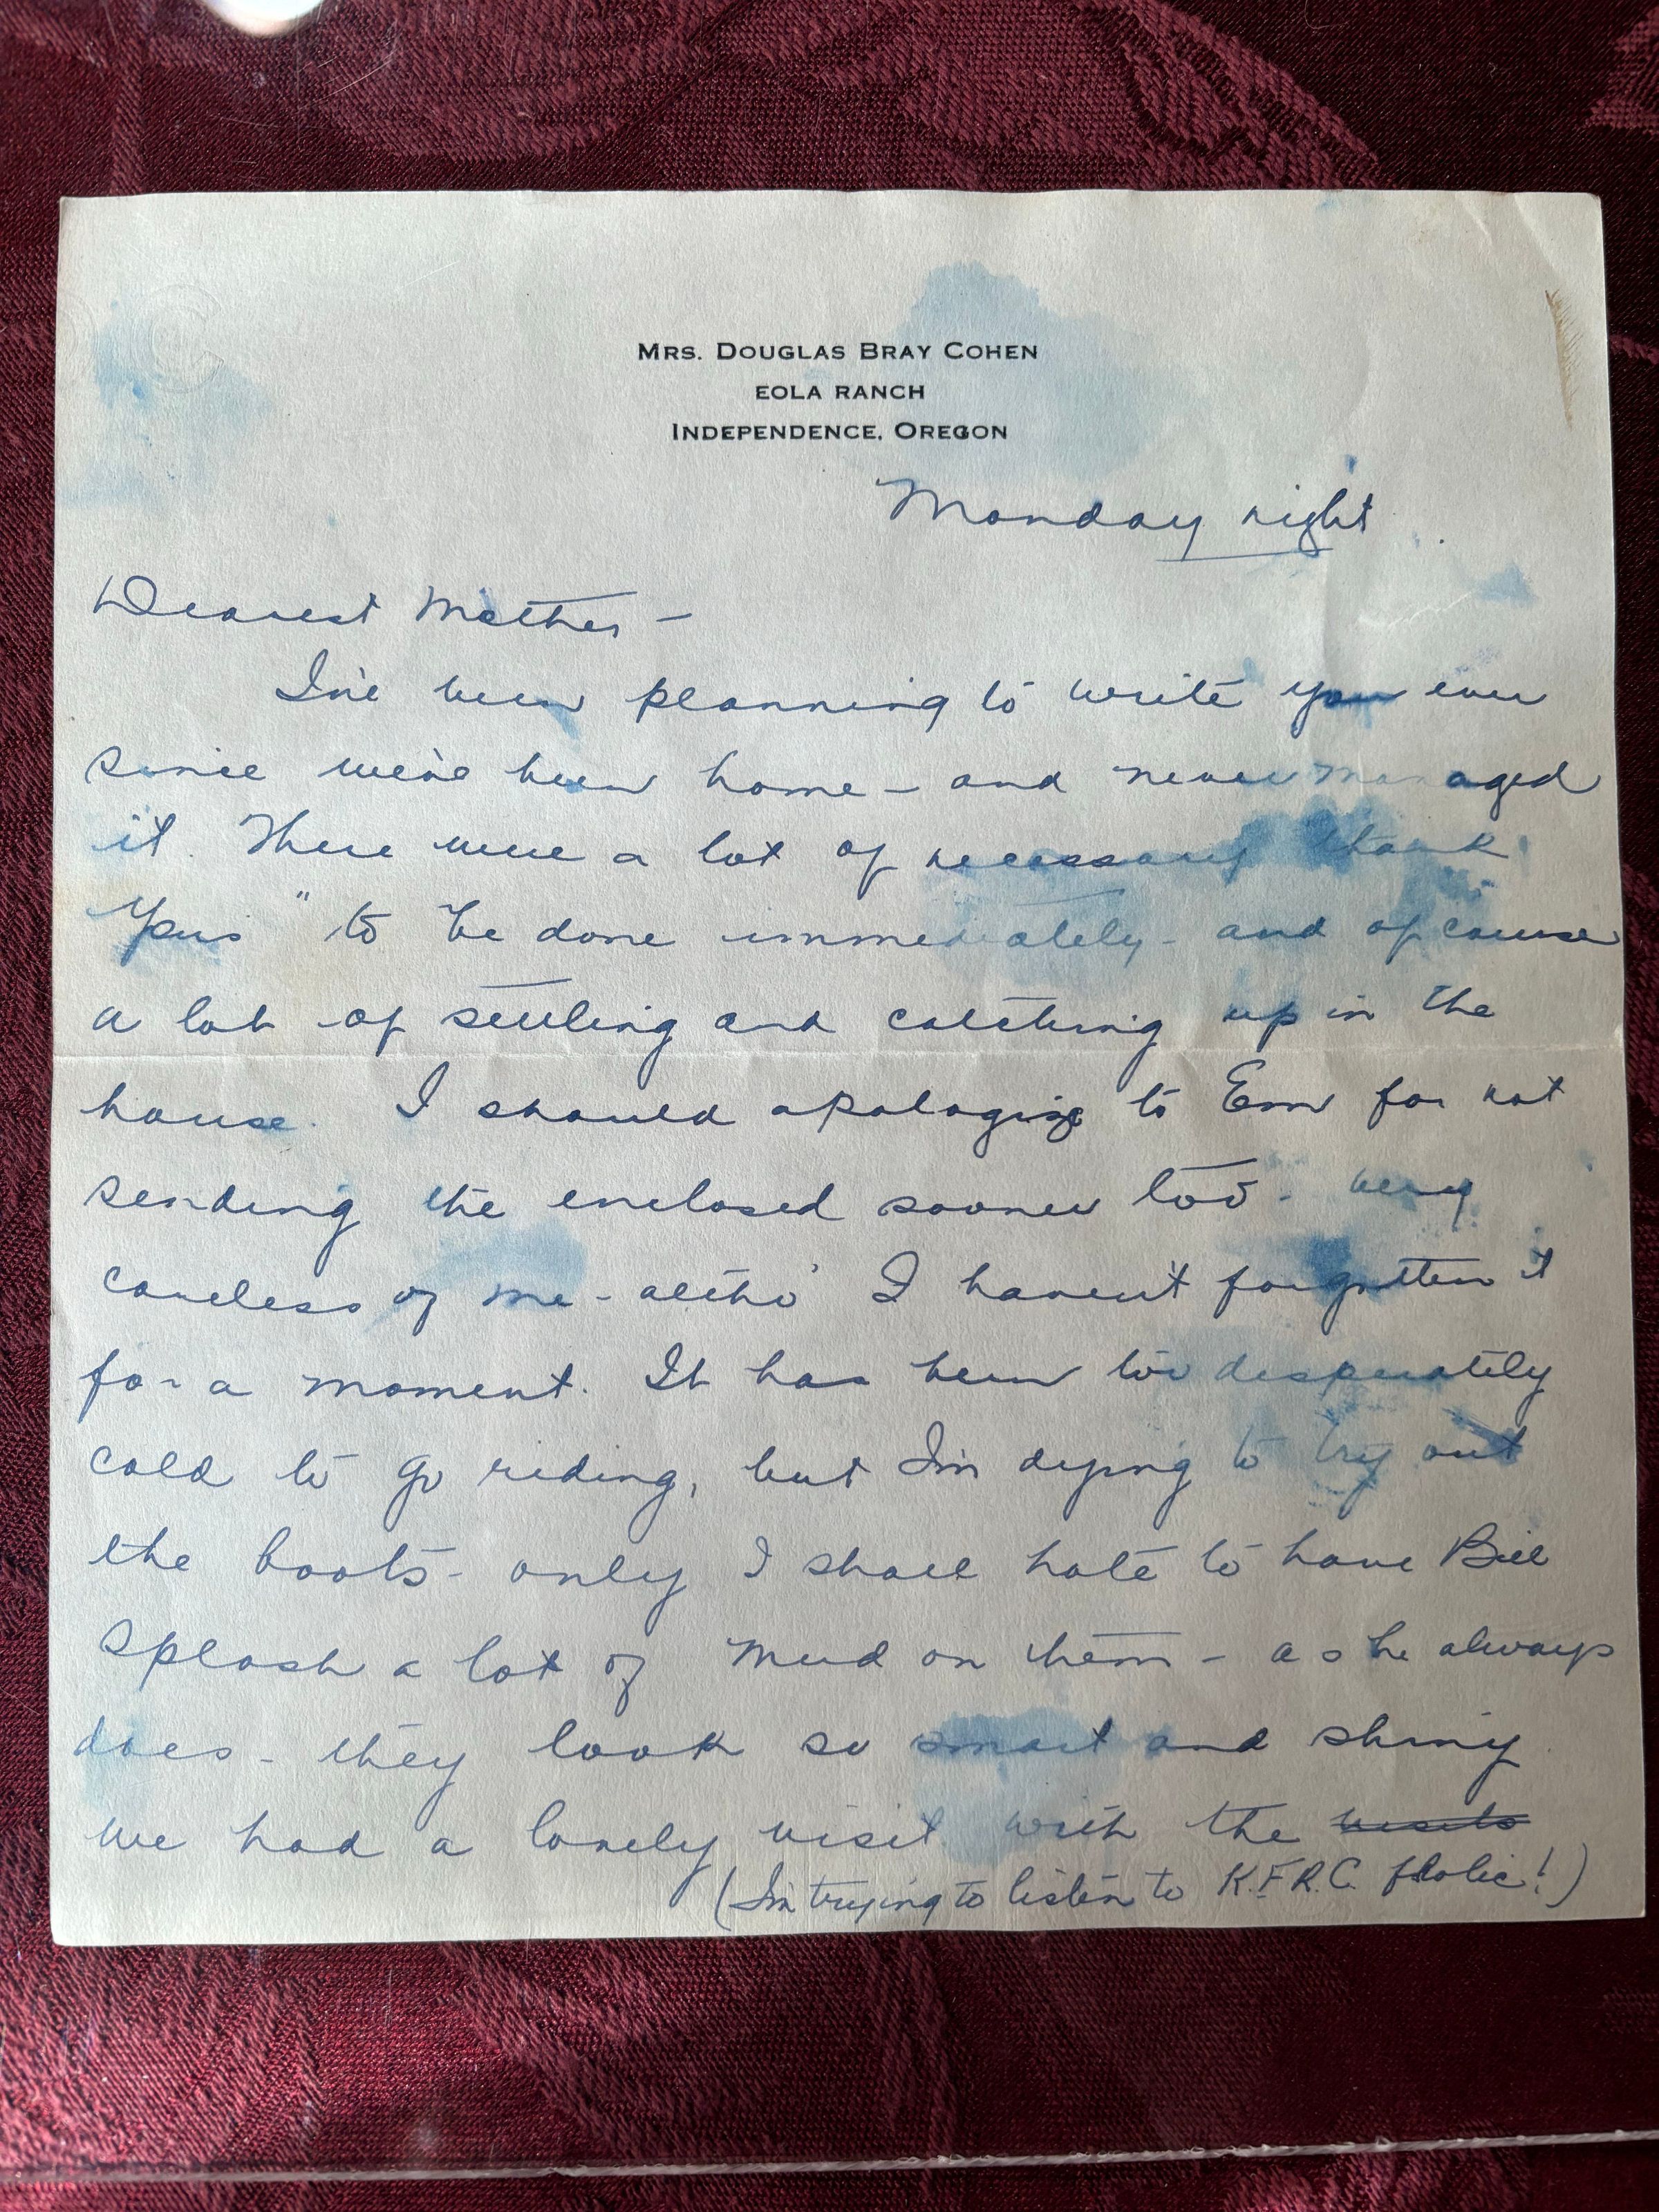 MRS. DOUGLAS BRAY COHEN
EOLA RANCH
INDEPENDENCE, OREGON
Monday night
Dearest Mother –
I've been planning to write you ever
since we've been home – and never managed
it. There were a lot of necessary "thank
yous" to be done immediately – and of course
a lot of settling and catching up in the
house. I should apologize to Em for not
sending the enclosed sooner too – very
careless of me – altho' I haven't forgotten it
for a moment. It has been too desperately
cold to go riding, but I'm dying to try out
the boots – only I shall hate to have Bill
splash a lot of mud on them – as he always
does – they look so smart and shiny
we had a lovely visit with the visits
(I'm trying to listen to K.F.R.C. frolic!)